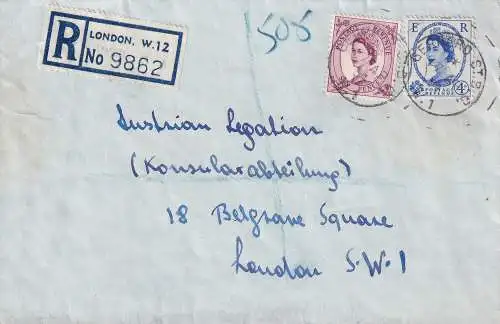 R LONDON. W.12
No 9862
505
POSTAGE REVENUE
E R
4D
Austrian Legation
(Konsularabteilung)
18 Belgrave Square
London S.W.1